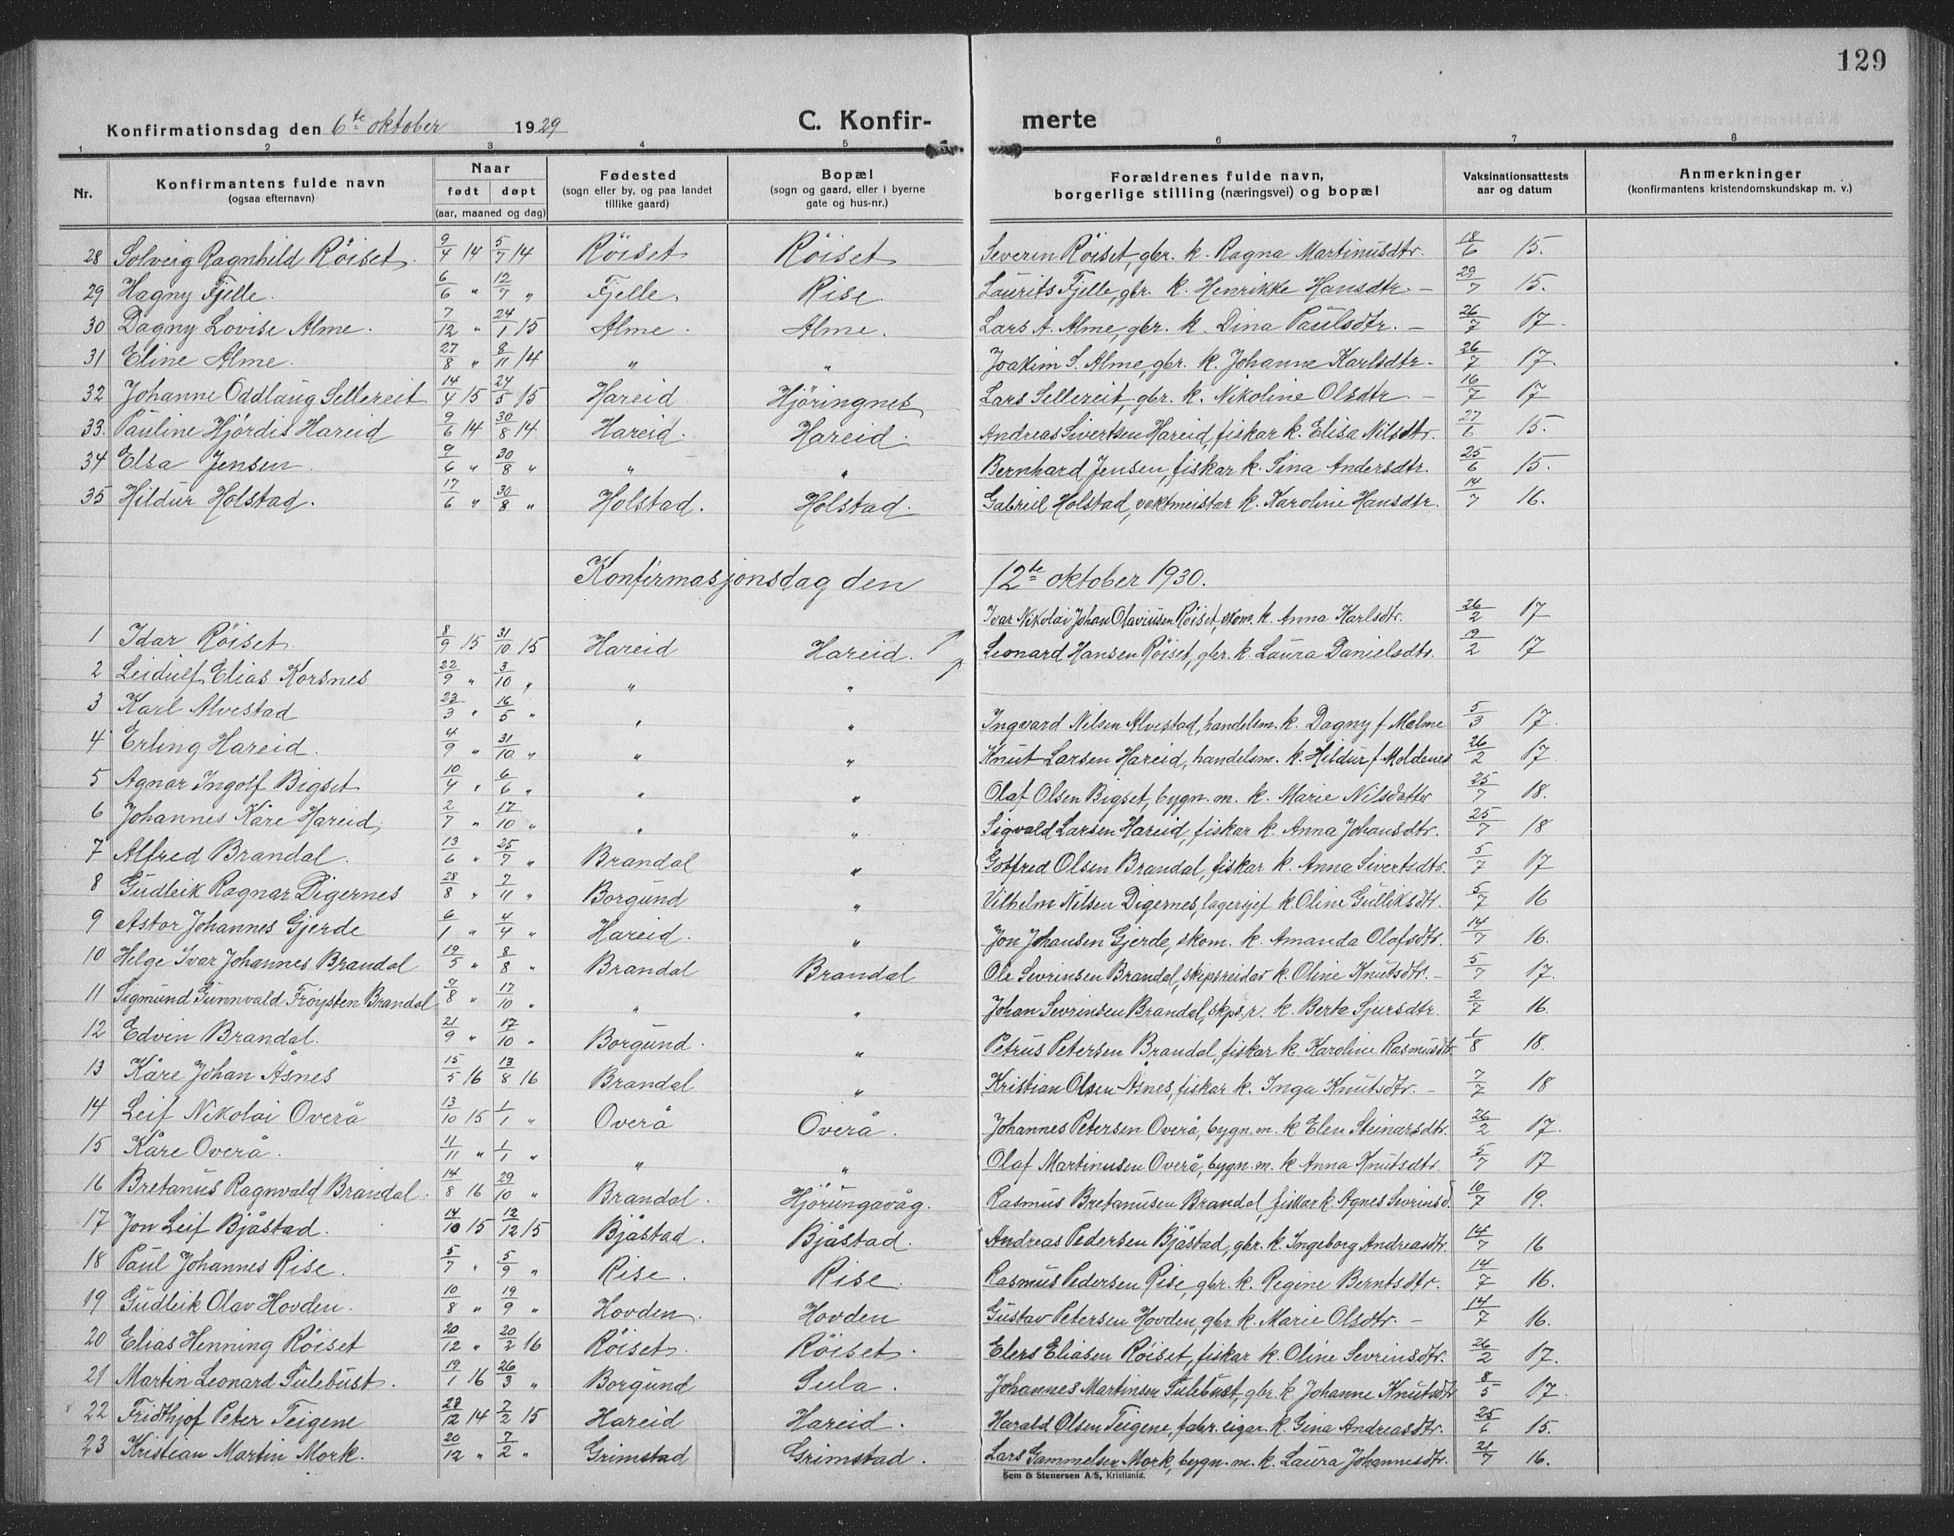 129
Konfirmationsdag den 6te oktober 1929 C. Konfir- merte
1 2 3 4 5 6 7 8
Nr. Konfirmantens fulde navn (ogsaa efternavn) Naar født døpt (aar, maaned og dag) Fødested (sogn eller by, og paa landet tillike gaard) Bopæl (sogn og gaard, eller i byerne gate og hus-nr.) Forældrenes fulde navn, borgerlige stilling (næringsvei) og bopæl Vaksinationsattests aar og datum Anmerkninger (konfirmantens kristendomskundskap m. v.)
28 Solveig Ragnhild Röiset. 9/4 14 5/7 14 Röiset Röiset Severin Röiset, gbr. k. Ragna Martinusdtr. 18/6 15.
29 Hagny Fjelle. 6/6 " 12/7 " Fjelle. Rise. Laurits Fjelle, gbr. k. Henrikke Hansdtr. – 29/7 15.
30 Dagny Lovise Alme. 7/12 " 24/1 15 Alme. Alme. Lars A. Alme, gbr. k. Dina Paulsdtr. – 26/7 17.
31 Eline Alme. 27/8 " 8/11 14 " " Joakim S. Alme, gbr. k. Johanne Karlsdtr. 26/7 17.
32 Johanne Oddlaug Sellereit 14/4 15 24/5 15 Hareid Hjöringnes Lars Sellereit, gbr. k. Nikoline Olsdtr. – 16/7 17
33. Pauline Hjördis Hareid 9/6 14 30/8 14 Hareid. Hareid. Andreas Sivertsen Hareid, fiskar k. Elisa Nilsdtr. 27/6 15.
34 Elsa Jensen. 9/6 " 30/8 " " " Bernhard Jensen, fiskar k. Sina Andersdtr. 25/6 15.
35 Hildur Holstad. 17/6 " 30/8 " Holstad. Holstad. Gabriel Holstad, vaktmeistar k. Karoline Hansdtr. 14/7 16.
Konfirmasjonsdag den 12te oktober 1930.
Ivar Nikolai Johan Olaviusen Röiset, skom. k. Anna Karlsdtr. 26/2 17
1 Idar Röiset. 8/9 15 31/10 15 Hareid Hareid. Leonard Hansen Röiset, gbr. k. Laura Danielsdtr. 9/2 17
2 Leidulf Elias Korsnes 22/9 " 3/10 " " "
3 Karl Alvestad 23/3 " 16/5 " " " Ingvard Nilsen Alvestad, handelsm. k. Dagny f. Malme 5/3 17.
4 Erling Hareid. 4/9 " 31/10 " " " Knut Larsen Hareid, handelsm. k. Hildur f. Moldenes 26/2 17.
5 Agnar Ingolf Bigset 10/4 " 6/6 " " " Olaf Olsen Bigset, bygn. m. k. Marie Nilsdatter 25/7 18.
6 Johannes Kåre Hareid. 2/7 " 17/10 " " " Sigvald Larsen Hareid, fiskar k. Anna Johansdtr. 25/7 18
7 Alfred Brandal. 13/6 " 25/7 " Brandal " Gotfred Olsen Brandal, fiskar k. Anna Sivertsdtr. 5/7 17
8 Gudleik Ragnar Digernes 28/8 " 7/11 " Borgund " Vilhelm Nilsen Digernes, lagersjef k. Oline Gulliksdtr. 5/7 16
9 Astor Johannes Gjerde 6/1 " 4/4 " Hareid. " Jon Johansen Gjerde, skom. k. Amanda Olafsdtr. 14/7 16.
10 Helge Ivar Johannes Brandal 19/5 " 8/8 " Brandal Brandal Ole Sevrinsen Brandal, skipsreidar k. Oline Knutsdtr. – 5/7 17.
11 Sigmund Gunnvald Fröysten Brandal 7/8 " 17/10 " " " Johan Sevrinsen Brandal, skps.r. k. Berta Sjursdtr. 2/7 16.
12 Edvin Brandal. 21/9 " 17/10 " Borgund. " Petrus Petersen Brandal, fiskar k. Karoline Rasmusdtr. 1/8 18.
13 Kåre Johan Åsnes 15/5 16 13/8 16 Brandal " Kristian Olsen Åsnes, fiskar k. Inga Knutsdtr. – 7/7 18
14 Leif Nikolai Overå 13/10 15 1/1 " Overå Overå. Johannes Petersen Overå, bygn. m. k. Elen Steinarsdtr. 26/2 17.
15 Kåre Overå. 11/11 " 1/1 " " " Olaf Martinusen Overå, bygn. m. k. Anna Knutsdtr. 5/7 17
16 Bretanus Ragnvald Brandal. 14/8 16 29/10 " Brandal. Hjörungavåg. Rasmus Bretanusen Brandal, fiskar k. Agnes Sevrinsd. 10/7 19.
17 Jon Leif Bjåstad. 14/10 15 12/12 15 Bjåstad. Bjåstad. Andreas Pedersen Bjåstad, gbr. k. Ingeborg Andreasdtr. 14/7 16
18 Paul Johannes Rise. 5/7 " 5/9 " Rise. Rise. Rasmus Pedersen Rise, gbr. k. Regine Berntsdtr. 14/7 16.
19 Gudleik Olav Hovden. 10/8 " 19/9 " Hovden. Hovden Gustav Petersen Hovden, gbr. k. Marie Olsdtr. – 14/7 16.
20 Elias Henning Röiset 20/12 " 20/2 16 Röiset. Röiset. Elers Eliasen Röiset, fiskar k. Oline Sevrinsdtr. 26/2 17.
21 Martin Leonard Sulebust. 19/1 16 26/3 " Borgund Sula. Johannes Martinsen Sulebust, gbr. k. Johanne Knutsdtr 8/5 17.
22 Fridthjof Peter Teigene 28/12 14 7/2 15 Hareid Hareid. Harald Olsen Teigene, fabr. eigar. k. Gina Andreasdtr. 25/6 15.
23 Kristian Martin Mork. 20/12 " 7/2 " Grimstad Grimstad. Lars Gammelsen Mork, bygn. m. k. Laura Johannesdtr. 21/7 16.
Sem & Stenersen A/S, Kristiania.